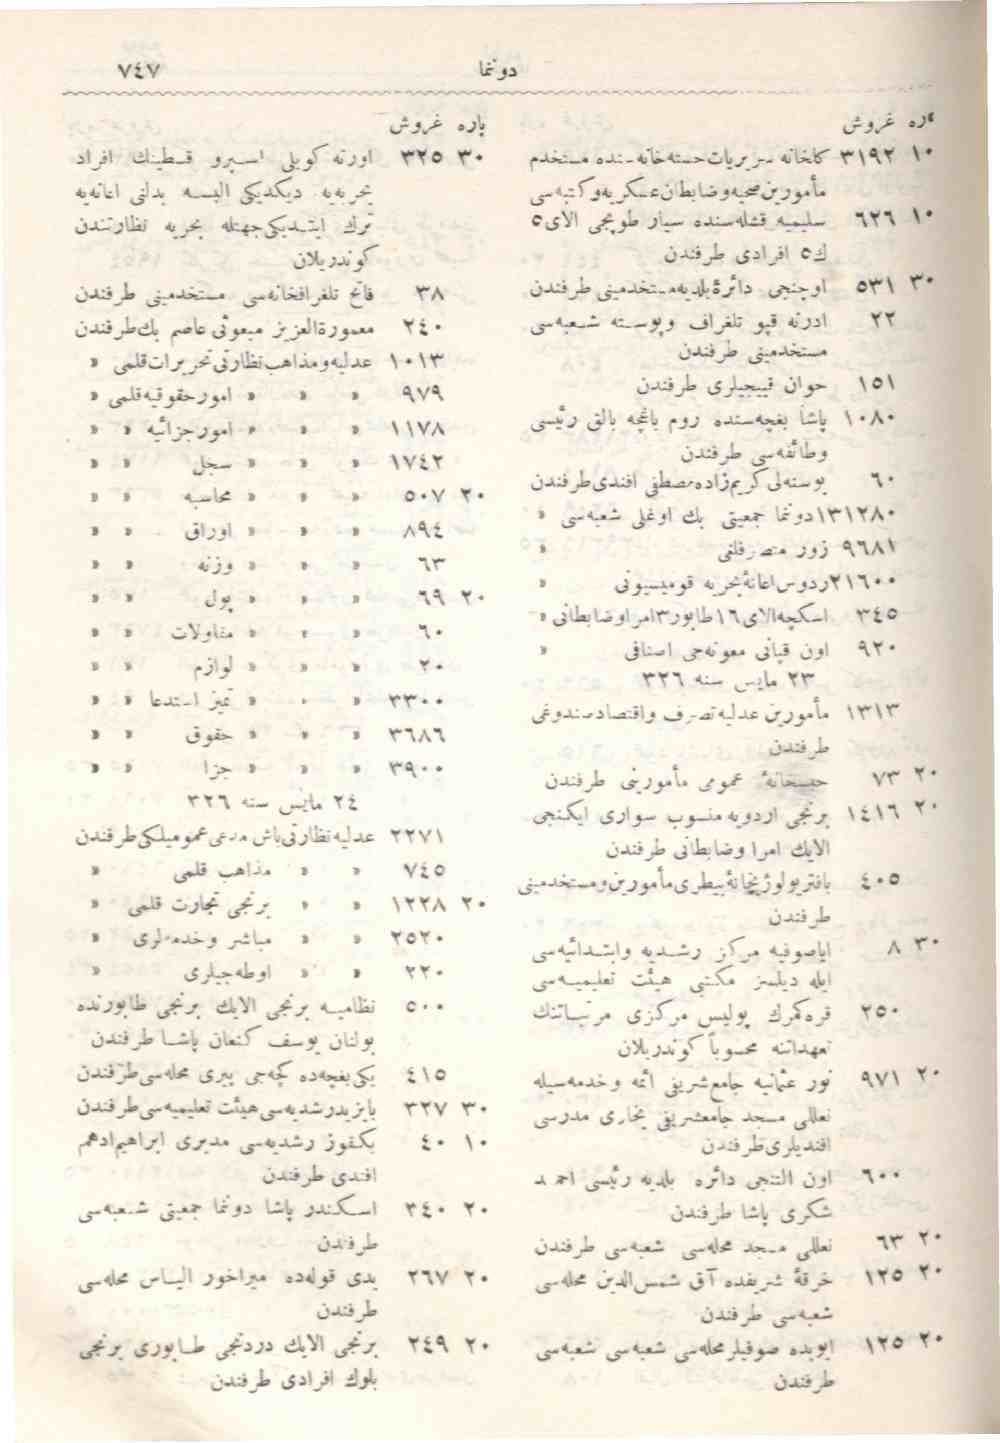 دونما
٧٤٧
پاره غروش
١٠ ٣١٩٢ كلخانه سريريات خسته‌خانه‌سنده مستخدم
مأمورين صحيه و ضابطان عسكريه و كتبه‌سی
١٠ ٦٢٦ سليميه قشله‌سنده سيار طوپجی آلای ٥
ك ٥ افرادی طرفندن
٣٠ ٥٣١ اوچنجی دائرۀ بلديه مستخدمينی طرفندن
٢٢ ادرنه قپو تلغراف و پوسته شعبه‌سی
مستخدمينی طرفندن
١٥١ حوان قييجيلری طرفندن
١٠٨٠ پاشا بغچه‌سنده روم باغچه بالق رئيسی
وطائفه‌سی طرفندن
٦٠ بوسنه‌لی كريم‌زاده مصطفی افندی طرفندن
١٣١٢٨٠ دونما جمعيتی بك اوغلی شعبه‌سی »
٩٦٨١ زور متصرفلغی »
٢١٦٠٠ ردوس اعانۀ بحريه قوميسيونی »
٣٤٥ اسكچه آلای ١٦ طابور ٣ امرا وضابطانی »
٩٢٠ اون قپانی معونه‌جی اصنافی »
٢٣ مايس سنه ٣٢٦
١٣١٣ مأمورين عدليه تصرف واقتصاد صندوغی
طرفندن
٢٠ ٧٣ حبسخانۀ عمومی مأمورينی طرفندن
٢٠ ١٤١٦ برنجی اردويه منسوب سواری ايكنجی
آلايك امرا وضابطانی طرفندن
٤٠٥ باقتريولوژيخانۀ بيطری مأمورين ومستخدمينی
طرفندن
٣٠ ٨ اياصوفيه مركز رشديه وابتدائيه‌سی
ايله ديلسز مكتبی هيئت تعليميه‌سی
٢٥٠ قره‌كمرك پوليس مركزی مرتباتنك
تعهداتنه محسوباً كوندريلان
٢٠ ٩٧١ نور عثمانيه جامع شريفی ائمه وخدمه‌سيله
نعللی مسجد جامعشريفی بخاری مدرسی
افنديلری طرفندن
٦٠٠ اون آلتنجی دائره بلديه رئيسی احمد
شكری پاشا طرفندن
٢٠ ٦٣ نعللی مسجد محله‌سی شعبه‌سی طرفندن
٢٠ ١٢٥ خرقۀ شريفده آق شمس‌الدين محله‌سی
شعبه‌سی طرفندن
٢٠ ١٢٥ ايوبده صوفيلر محله‌سی شعبه‌سی شعبه‌سی
طرفندن
پاره غروش
٣٠ ٣٢٥ اورته كويلی اسپرو قسطينك افراد
بحريه‌يه ديكديكی البسه بدلنی اعانه‌يه
ترك ايتديكی جهتله بحريه نظارتندن
كوندريلان
٣٨ فاتح تلغرافخانه‌سی مستخدمينی طرفندن
٢٤٠ معمورة‌العزيز مبعوثی عاصم بك طرفندن
١٠١٣ عدليه ومذاهب نظارتی تحريرات قلمی »
٩٧٩ » » » امور حقوقيه قلمی »
١١٧٨ » » » امور جزائيه » »
١٧٤٢ » » » سجل » »
٢٠ ٥٠٧ » » » محاسبه » »
٨٩٤ » » » اوراق » »
٦٣ » » » وزنه » »
٢٠ ٦٩ » » » پول » »
٦٠ » » » مقاولات » »
٢٠ » » » لوازم » »
٣٣٠٠ » » » تميز استدعا » »
٣٦٨٦ » » » حقوق » »
٣٩٠٠ » » » جزا » »
٢٤ مايس سنه ٣٢٦
٢٢٧١ عدليه نظارتی باش مدعی عموميلكی طرفندن
٧٤٥ » » مذاهب قلمی »
٢٠ ١٢٢٨ » » برنجی تجارت قلمی »
٢٥٢٠ » » مباشر وخدمه‌لری »
٢٢٠ » » اوطه‌جيلری »
٥٠٠ نظاميه برنجی آلايك برنجی طابورنده
بولنان يوسف كنعان پاشا طرفندن
٤١٥ يكی بغچه‌ده كچه‌جی پيری محله‌سی طرفندن
٣٠ ٣٢٧ بايزيد رشديه‌سی هيئت تعليميه‌سی طرفندن
١٠ ٤٠ بكقوز رشديه‌سی مديری ابراهيم ادهم
افندی طرفندن
٢٠ ٣٤٠ اسكندر پاشا دونما جمعيتی شعبه‌سی
طرفندن
٢٠ ٢٦٧ يدی قوله‌ده ميراخور الياس محله‌سی
طرفندن
٢٠ ٢٤٩ برنجی آلايك دردنجی طابوری برنجی
بلوك افرادی طرفندن